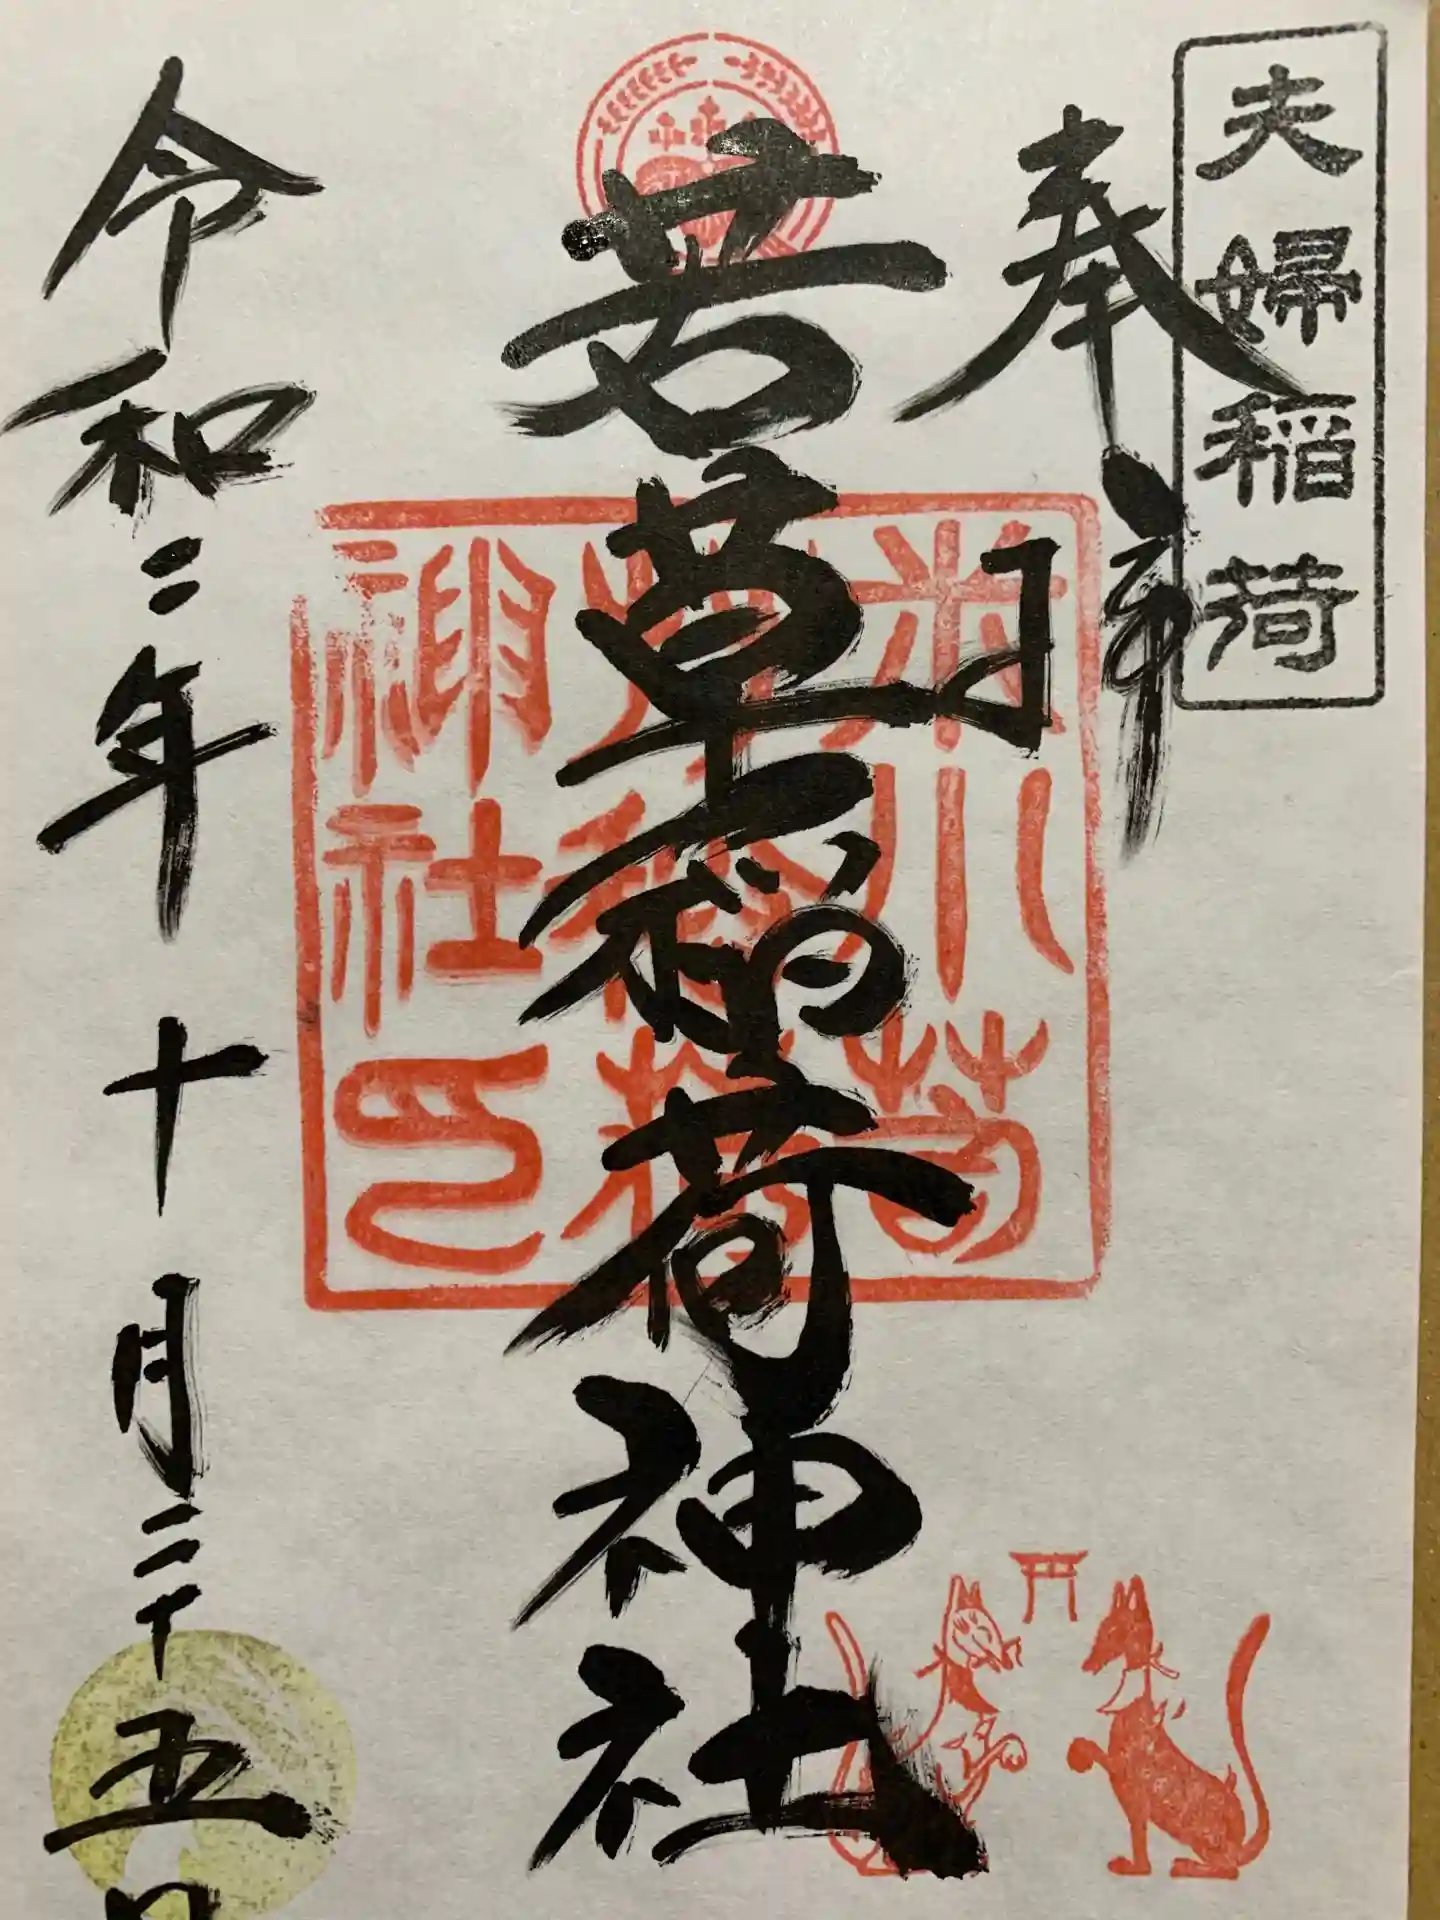 夫婦稲荷
奉拝
若草稲荷神社
神社印
令和二年十月二十五日